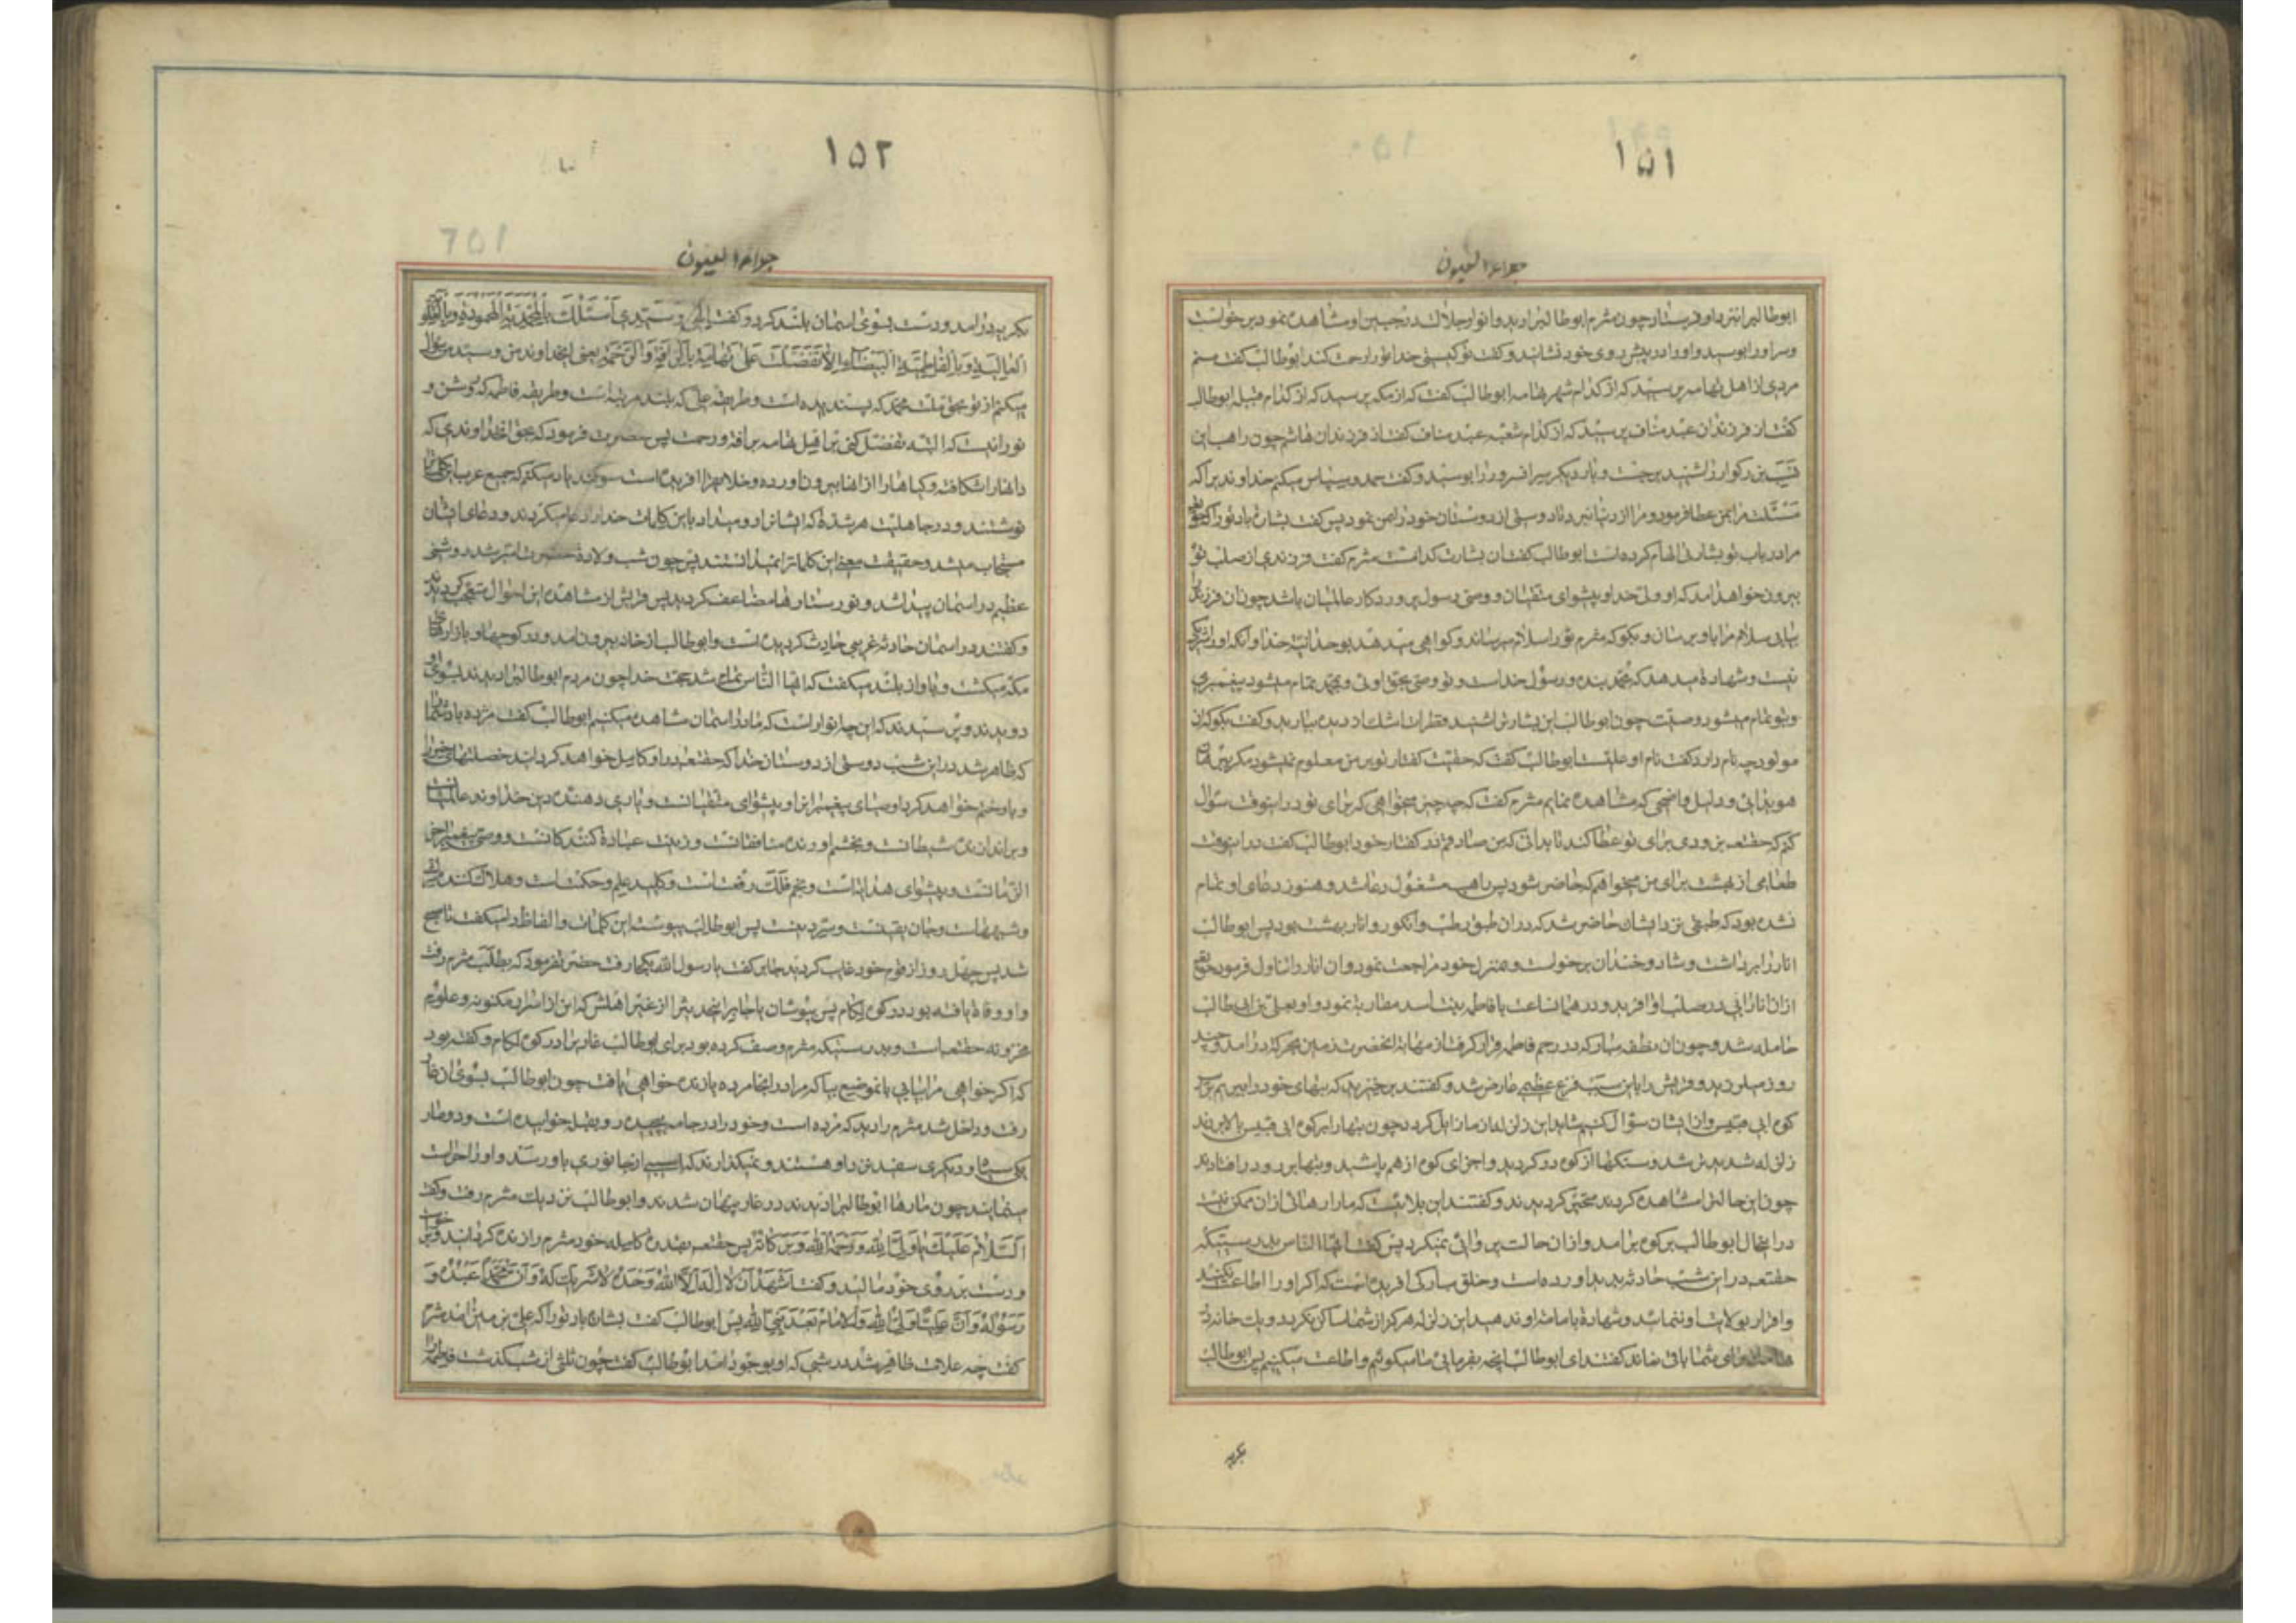 ١٥١
جلاء العیون
ابوطالب را نزد او فرستاد چون مثرم ابوطالب را دید و انوار جلالت در جبین او مشاهده نمود برخواست
و سر او را بوسید و او را در پیش روی خود نشانید و گفت تو کیستی خدا تو را رحمت کند ابوطالب گفت منم
مردی از اهل تهامه پرسید که از کدام شهر تهامه ابوطالب گفت که از مکه پرسید که از کدام قبیله ابوطالب
گفت از فرزندان عبد مناف پرسید که از کدام شعبه عبد مناف گفت از فرزندان هاشم چون راهب این
بزرکوار را شنید برجست و بار دیگر سر انسرور را بوسید و گفت حمد و سپاس میکنم خداوندیرا که
مسئلت مرا بمن عطا فرمود و مرا از دنیا نبرد تا دوستی از دوستان خود را بمن نمود پس گفت بشارت باد تو را که
مرا در باب تو بشارتی الهام کرده است ابوطالب گفت ان بشارت کدامست مثرم گفت فرزندی از صلب تو
بیرون خواهد امد که او ولی خدا و پیشوای متقیان و وصی رسول پروردکار عالمیان باشد چون ان فرزند را
بیابی سلام مرا باو برسان و بگو که مثرم تو را سلام میرساند و گواهی میدهد بوحدانیت خدا و انکه او را شریک
نیست و شهادة میدهد که محمد بنده و رسول خداست و تو وصی بحق اوئی و بمحمد تمام میشود پیغمبری
و بتو تمام میشود وصیت چون ابوطالب این بشارت را شنید قطرات اشک از دیده ببارید و گفت بگو که ان
مولود چه نام دارد گفت نام او علیست ابوطالب گفت که حقیت گفتار تو بر من معلوم نمیشود مگر ببرهان
هویدائی و دلیل واضحی که مشاهده نمایم مثرم گفت که چه چیز میخواهی که برای تو در اینوقت سؤال
کنم که حقتعالی بزودی برای تو عطا کند تا بدانی که من صادقم در گفتار خود ابوطالب گفت در اینوقت
طعامی از بهشت برای من میخواهم که حاضر شود پس راهب مشغول دعا شد و هنوز دعای او تمام
نشده بود که طبقی نزد ایشان حاضر شد که در ان طبق رطب و انگور و انار بهشت بود پس ابوطالب
انار را برداشت و شاد و خندان برخواست و بمنزل خود مراجعت نمود و ان انار را تناول فرمود حقتعالی
از ان انار ابی در صلب او افرید و در همانساعت با فاطمه بنت اسد مقاربة نمود و او بعلی بن ابی طالب
حامله شد و چون ان نطفه مبارکه در رحم فاطمه قرار گرفت از مهابة انحضرت زمین بحرکة درامد و چند
روز میلرزید و قریش را باین سبب فزع عظیمی عارض شد و گفتند برخیزید که بتهای خود را ببریم بر
کوه ابی قبیس و از ایشان سؤال کنیم شاید این زلزله از ما زایل گردد چون بتها را بر کوه ابی قبیس بالا بردند
زلزله شدیدتر شد و سنگها از کوه دور گردید و اجزای کوه از هم پاشید و بتها بر رو در افتادند
چون این حالترا مشاهده کردند متحیر گردیدند و گفتند این بلائیست که ما را رهائی از ان ممکن نیست
در اینحال ابوطالب بر کوه برامد و از ان حالت پروائی نمیکرد پس گفت ایها الناس بدرستیکه
حقتعالی در این شب حادثه پدید اورده است و خلق مبارکی افریده است که اگر او را اطاعت نکنید
و اقرار بولایت او ننمائید و شهادة بامامت او ندهید این زلزله هرگز از شما ساکن نگردد و یک خانه در
برای شما باقی نماند گفتند ای ابوطالب انچه بفرمائی ما میگوئیم و اطاعت میکنیم پس ابوطالب
بگریه
١٥٢
جلاء العیون
بگریه درامد و دست بسوی اسمان بلند کرد و گفت الهی و سیدی اسئلک بالمحمدیة المحمودة و بالعلویة
العالیة و بالفاطمیة البیضاء الا تفضلت علی تهامة بالرافة و الرحمة یعنی ایخداوند من و سید من سؤال
میکنم از تو بحق ملت محمد که پسندیده است و طریقه علی که بلند مرتبه است و طریقه فاطمه که روشن و
نورانیست که البته تفضل کنی بر اهل تهامه برافة و رحمت پس حضرت فرمود که بحق انخداوندی که
دانها را شکافته و گیاهها را از انها بیرون اورده و خلایقرا افریده است سوگند یاد میکنم که جمیع عرب این کلماترا
نوشتند و در جاهلیت هر شدة که ایشانرا رو میداد باین کلمات خدا را دعا میکردند و دعای ایشان
مستجاب میشد و حقیقت معنی این کلماترا نمیدانستند پس چون شب ولادة حضرت امیر شد روشنی
عظیم در اسمان پیدا شد و نور ستارها مضاعف گردید پس قریش از مشاهده این احوال متعجب گردیدند
و گفتند در اسمان حادثه غریبی حادث گردیده است و ابوطالب از خانه بیرون امد و در کوچها و بازارهای
مکه میگشت و باواز بلند میگفت که ایها الناس تمام شد حجت خدا چون مردم ابوطالب را دیدند بسوی او
دویدند و پرسیدند که این چه انوار است که ما در اسمان مشاهده میکنیم ابوطالب گفت مژده باد شما را
که ظاهر شد در این شب دوستی از دوستان خدا که حقتعالی در او کامل خواهد گردانید خصلتهای خیر را
و باو ختم خواهد کرد اوصیای پیغمبرانرا و پیشوای متقیانست و یاری دهنده دین خداوند عالمیانست
و براندازنده شیطانست و بخشم اورنده منافقانست و زینت عبادة کنندکانست و وصی پیغمبر اخر
الزمانست و پیشوای هدایتست و نجم فلک رفعتست و کلید علم و حکمتست و هلاک کننده شرک
و شبهاتست و جان یقینست و سر دینست پس ابوطالب پیوسته این کلمات و الفاظ را میگفت تا صبح
شد پس چهل روز از قوم خود غایب گردید جابر گفت یا رسول الله بکجا رفت حضرت فرمود که بطلب مثرم رفت
و او وفاة یافته بود در کوه لکام پس بپوشان یا جابر اینحدیثرا از غیر اهلش که این از اسرار مکنونه و علوم
مخزونه حقتعالیست و بدرستیکه مثرم وصف کرده بود برای ابوطالب غاریرا در کوه لکام و گفته بود
که اگر خواهی مرا بیابی بانموضع بیا که مرا در انجا مرده یا زنده خواهی یافت چون ابوطالب بسوی ان غار
رفت و داخل شد مثرم را دید که مرده است و خود را در جامه پیچیده رو بقبله خوابیده است و دو مار
یکی سیاه و دیگری سفید نزد او هستند و نمیگذارند که اسیبی از جانوری باو رسد و او را حراست
مینمایند چون مارها ابوطالب را دیدند در غار پنهان شدند و ابوطالب نزدیک مثرم رفت و گفت
السلام علیک یا ولی الله و رحمة الله و برکاته پس حقتعالی بقدرت کامله خود مثرم را زنده گردانید و برخواست
و دست بر روی خود مالید و گفت اشهد ان لا اله الا الله وحده لا شریک له و ان محمدا عبده و
رسوله و ان علیا ولی الله و الامام بعد نبی الله پس ابوطالب گفت بشارت باد تو را که علی بزمین امد مثرم
گفت چه علامت ظاهر شد در شبی که او بوجود امد ابوطالب گفت چون ثلثی از شب گذشت فاطمه را